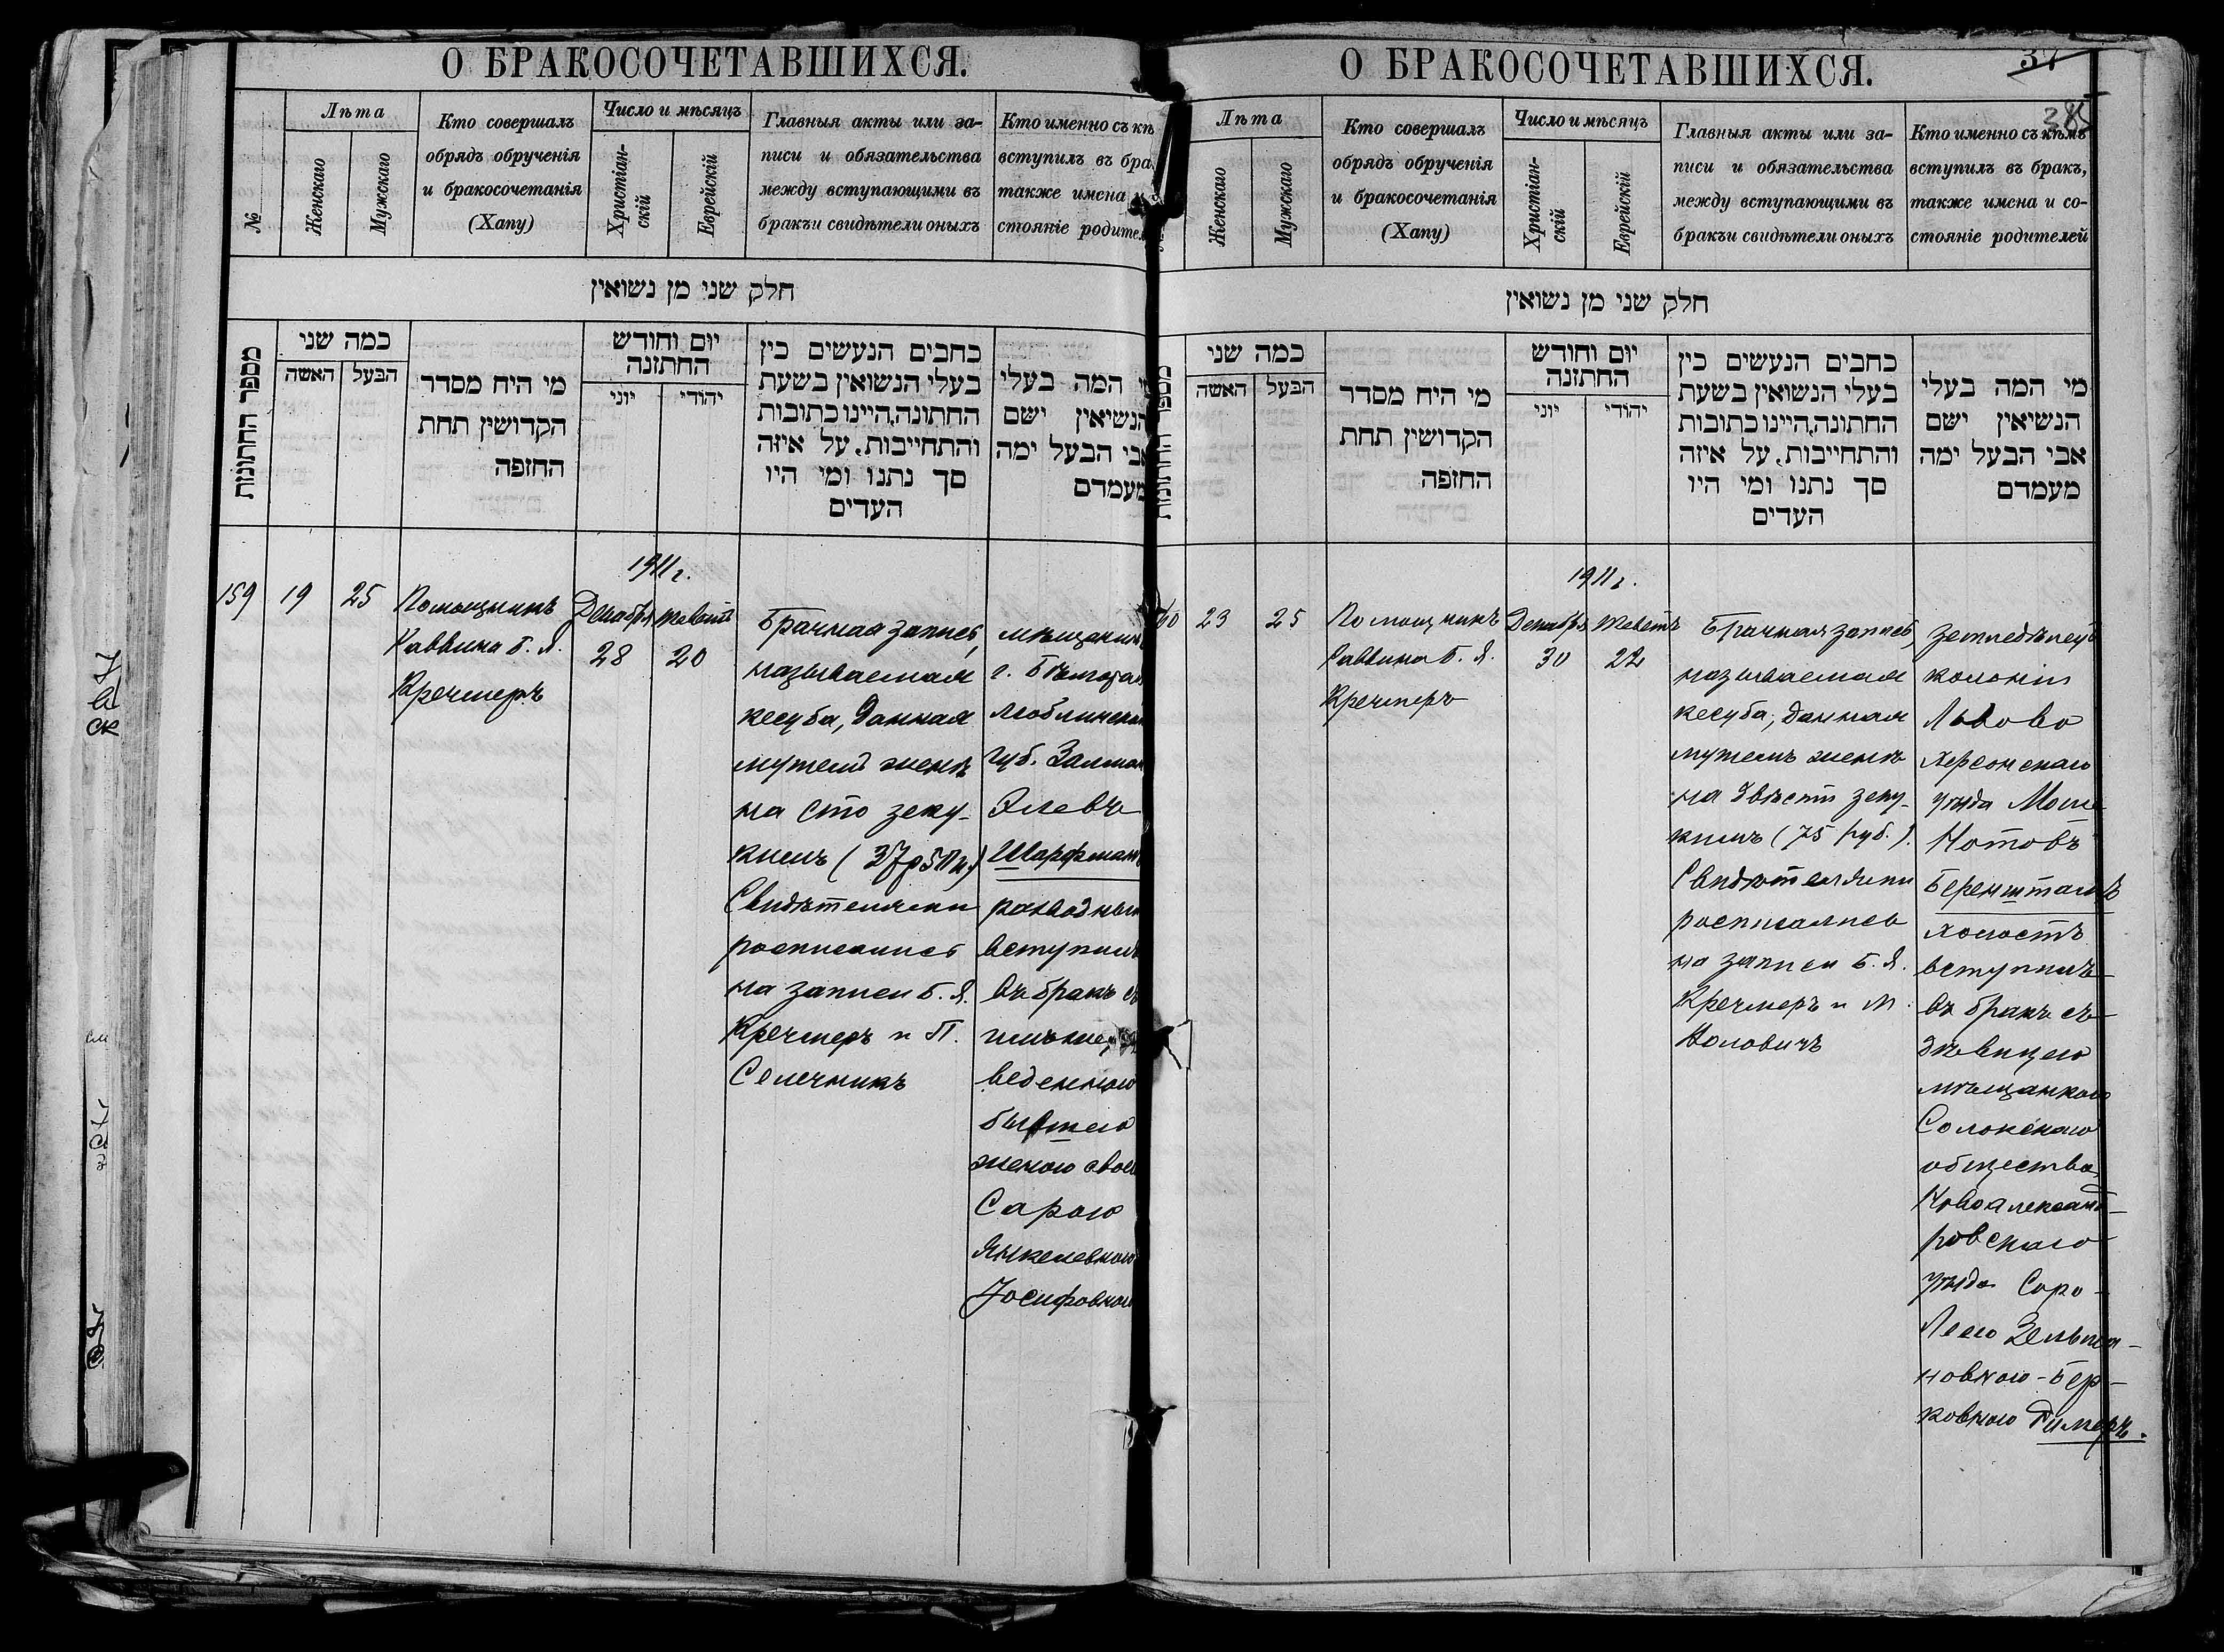 О БРАКОСОЧЕТАВШИХСЯ.
№
Лѣта
Женскаго
Мужскаго
Кто совершалъ
обрядъ обрученія
и бракосочетанія
(Хапу)
Число и мѣсяцъ
Христіан-
скій
Еврейскій
Главныя акты или за-
писи и обязательства
между вступающими въ
бракъи свидѣтели оныхъ
Кто именно съ кѣ
вступилъ въ бра
также имена и
стояніе родител
חלק שני מן נשואין
מספר החתונות
כמה שני
האשה
הבעל
מי היח מסדר
הקדושין תחת
החופה
יום וחודש
החתונה
יוני
יהודי
כתבים הנעשים בין
בעלי הנשואין בשעת
החתונה,היינו כתובות
והתחייבות, על איזה
סך נתנו ומי היו
העדים
המה בעלי
הנשיאין ישם
אבי הבעל ימה
מעמדם
1911 г.
159
19
25
Помощникъ
Раввина Б. Я.
Кречмеръ
Декабря
28
Тевета
20
Брачная запись,
называемая
кесуба, данная
мужемъ женѣ
на сто зеку-
кимъ (37р 50к)
Свидѣтелями
росписались
на записи Б. Я.
Кречмеръ и П.
Селечникъ
мѣщанинъ
г. Бѣлгорая
Люблинской
губ. Залман
Элевъ
Шарфманъ
разводный
вступилъ
въ бракъ съ
веденною
бывшею
женою своей
Сарою
Янкелевною
Іосифовной
О БРАКОСОЧЕТАВШИХСЯ.
37
38
Лѣта
Женскаго
Мужскаго
Кто совершалъ
обрядъ обрученія
и бракосочетанія
(Хапу)
Число и мѣсяцъ
Христіан-
скій
Еврейскій
Главныя акты или за-
писи и обязательства
между вступающими въ
бракъи свидѣтели оныхъ
Кто именно съ кѣмъ
вступилъ въ бракъ,
также имена и со-
стояніе родителей
חלק שני מן נשואין
כמה שני
האשה
הבעל
מי היח מסדר
הקדושין תחת
החופה
יום וחודש
החתונה
יוני
יהודי
כתבים הנעשים בין
בעלי הנשואין בשעת
החתונה,היינו כתובות
והתחייבות, על איזה
סך נתנו ומי היו
העדים
מי המה בעלי
הנשיאין ישם
אבי הבעל ימה
מעמדם
1911 г.
60
23
25
Помощникъ
Раввина Б. Я.
Кречмеръ
Декабря
30
Теветъ
22
Брачная запись,
называемая
кесуба, данная
мужемъ женѣ
на двѣсти зеку-
кимъ (75 руб.).
Свидѣтелями
росписались
на записи Б. Я.
Кречмеръ и М.
Воловичъ
земледѣлецъ
колоніи
Львово
Херсонскаго
уѣзда Моше
Нотовъ
Беренштамъ
холостъ
вступилъ
въ бракъ съ
дѣвицею
мѣщанкою
Солокскаго
общества
Новоалександ-
ровскаго
уѣзда Соро-
Леею Зельма-
новною-Бер-
ковною Гилеръ.